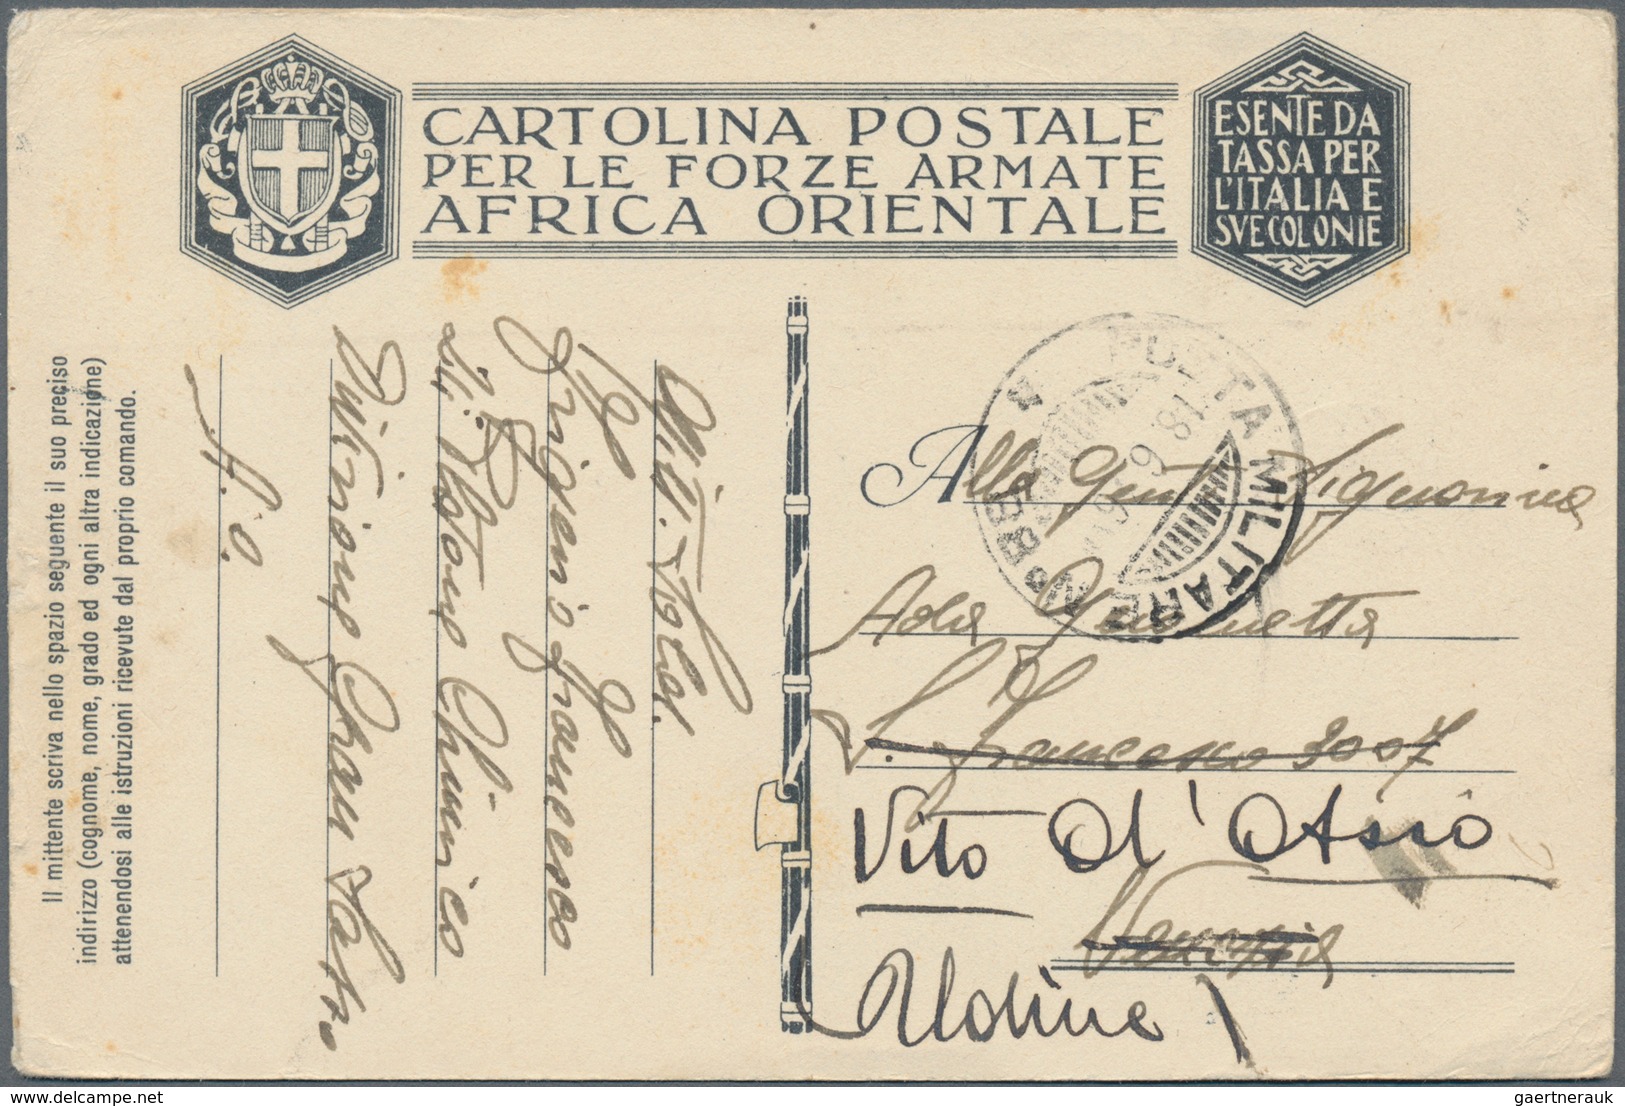 CARTOLINA POSTALE
PER LE FORZE ARMATE
AFRICA ORIENTALE
ESENTE DA
TASSA PER
L'ITALIA E
SVE COLONIE
Il mittente scriva nello spazio seguente il suo preciso
indirizzo (cognome, nome, grado ed ogni altra indicazione)
attenendosi alle istruzioni ricevute dal proprio comando.
Francesco
Plotone Chimico
Divisione Gran Sasso
A.O.
POSTA MILITARE N°
Alla Gent. Signorina
Ada
S. Francesco 3007
Vito d'Asio
Venezia
Udine
gaertnerauk